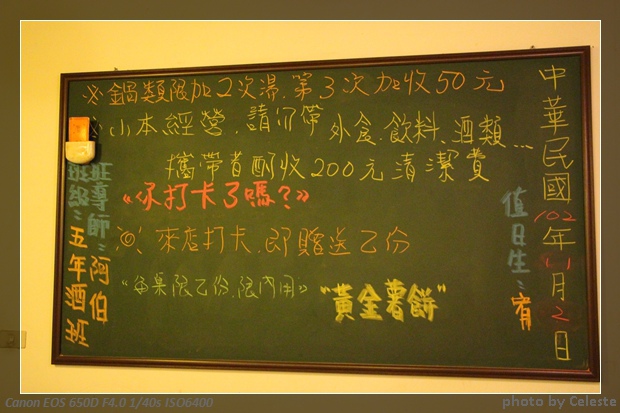 ※鍋類限加2次湯.第3次加收50元
※小本經營.請勿帶外食.飲料.酒類...
攜帶者酌收200元清潔費
《你打卡了嗎?》
◎來店打卡.即贈送乙份
《每桌限乙份.限內用》
"黃金薯餅"
中華民國102年11月2日
值日生：宥
班導師：阿伯
班級：五年酒班
Canon EOS 650D F4.0 1/40s ISO6400
photo by Celeste